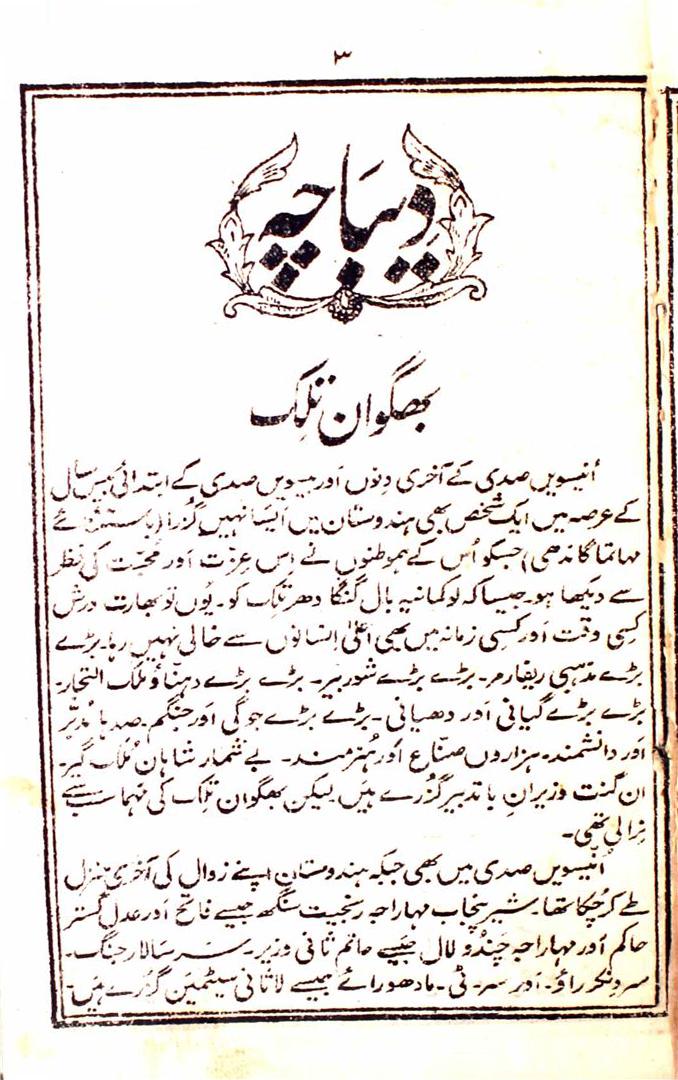 ۳
دیباچہ
بھگوان تلک
اُنیسویں صدی کے آخری دِنوں اَور بیسویں صدی کے ابتدائی بیس سال
کے عرصہ میں ایک شخص بھی ہندوستان میں ایسا نہیں گُزرا (باستثنائے
مہاتما گاندھی) جسکو اُس کے ہموطنوں نے اِس عِزّت اَور مُحبّت کی نظر
سے دیکھا ہو۔ جیسا کہ لوکمانیہ بال گنگا دھر تلک کو۔ یُوں تو بھارت ورش
کِسی وقت اَور کِسی زمانہ میں بھی اَعلیٰ اِنسانوں سے خالی نہیں رہا۔ بڑے
بڑے مذہبی ریفارمر۔ بڑے بڑے شوربیر۔ بڑے بڑے دہناؤ ملک التجار۔
بڑے بڑے گیانی اَور دھیانی۔ بڑے بڑے جوگی اَور جنگم۔ صدہا مُدبّر
اَور دانشمند۔ ہزاروں صنّاع اَور ہُنرمند۔ بے شمار شاہانِ مُلک گیر۔
ان گنت وزیرانِ باتدبیر گزرے ہیں لیکن بھگوان تلک کی مہما سب سے
نِرالی تھی۔
اُنیسویں صدی میں بھی جبکہ ہندوستان اپنے زوال کی آخری منزل
طے کر چُکا تھا۔ شیرِ پنجاب مہاراجہ رنجیت سنگھ جیسے فاتح اَور عدل گستر
حاکم اَور مہاراجہ چندُو لال جیسے حاتم ثانی وزیر۔ سر سالار جنگ۔
سر دِنکر راؤ۔ اَور سر۔ ٹی۔ مادھو رائے جیسے لاثانی سٹیٹمین گزرے ہیں۔